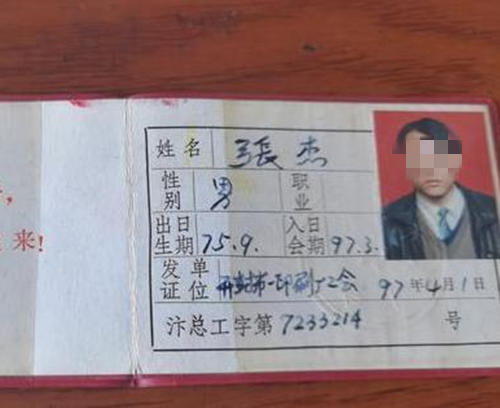 来!
姓名 張杰
性别 男 职业
出生日期 75.9. 入会日期 97.3.
发证单位 开封市一印刷厂工会 97年4月1日
汴总工字第7233214号